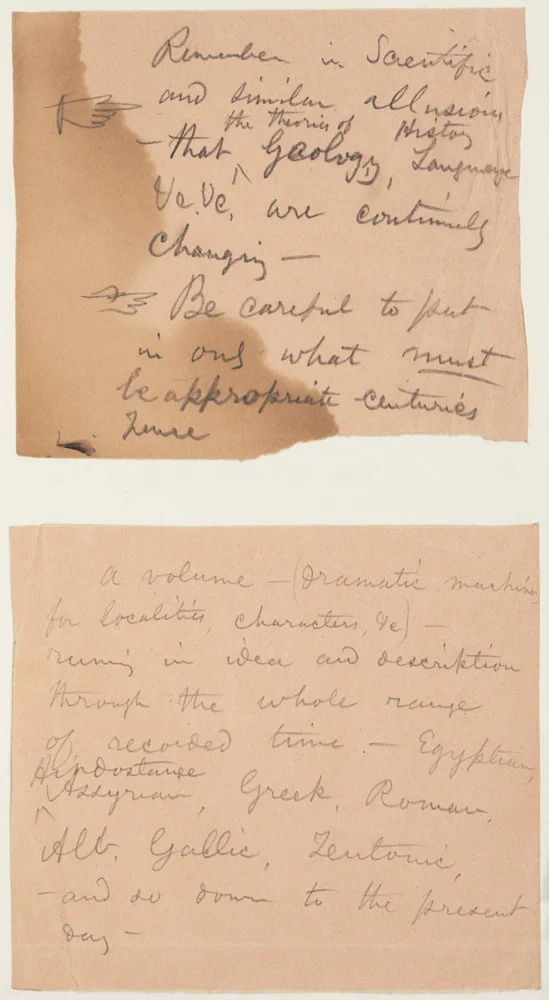 Remember in Scientific
and similar allusions
the theories of History
— that ^ Geology, Language
&c. &c, are continually
changing —
☞ Be careful to put
in only what must
be appropriate centuries
hence
a volume — (dramatic machinery
for localities, characters, &c) —
runing in idea and description
through the whole range
of recorded time — Egyptian,
Hindostanee
^ Assyrian, Greek, Roman,
Alb, Gallic, Teutonic,
— and so down to the present
day —